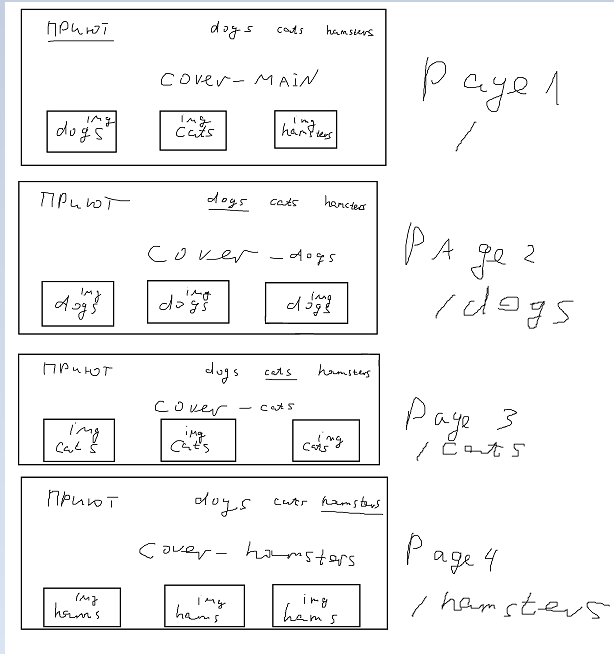 ПРИЮТ dogs cats hamsters
COVER – MAIN
img dogs img cats img hamsters
Page 1
/
ПРИЮТ dogs cats hamcters
COVER – dogs
img dogs img dogs img dogs
PAge 2
/dogs
ПРИЮТ dogs cats hamsters
COVER – cats
img cats img cats img cats
Page 3
/cats
ПРИЮТ dogs cats hamsters
Cover – hamsters
img hams img hams img hams
Page 4
/hamsters